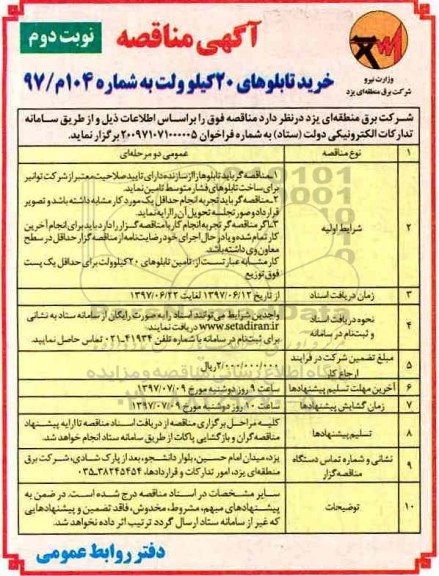 آگهی مناقصه
نوبت دوم
وزارت نیرو
شرکت برق منطقه‌ای یزد
خرید تابلوهای ۲۰کیلو ولت به شماره ۱۰۴م/۹۷
شرکت برق منطقه‌ای یزد درنظر دارد مناقصه فوق را براساس اطلاعات ذیل و از طریق سامانه
تدارکات الکترونیکی دولت (ستاد) به شماره فراخوان ۲۰۰۹۷۱۰۷۱۰۰۰۰۰۵ برگزار نماید.
۱ نوع مناقصه عمومی دو مرحله‌ای
۲ شرایط اولیه
۱ـ مناقصه گر باید تابلوها را از سازنده دارای تایید صلاحیت معتبر از شرکت توانیر
برای ساخت تابلوهای فشار متوسط تامین نماید.
۲ـ مناقصه گر باید تجربه انجام حداقل یک مورد کار مشابه داشته باشد و تصویر
قرارداد و صورتجلسه تحویل آن را ارایه نماید.
۳ـ اگر مناقصه گر تجربه انجام کار با مناقصه گزار را دارد باید برای انجام آخرین
کار تمام شده و یا در حال اجرای خود رضایت‌نامه از مناقصه گزار حداقل در سطح
معاون وی داشته باشد.
کار مشابه عبارتست از: تامین تابلوهای ۲۰کیلوولت برای حداقل یک پست
فوق توزیع
۳ زمان دریافت اسناد از تاریخ ۱۳۹۷/۰۶/۱۲ لغایت ۱۳۹۷/۰۶/۲۲
۴ نحوه دریافت اسناد و ثبت‌نام در سامانه
واجدین شرایط می‌توانند اسناد را به صورت رایگان از سامانه ستاد به نشانی
www.setadiran.ir دریافت نمایند.
برای ثبت‌نام در سامانه با شماره تلفن ۴۱۹۳۴-۰۲۱ تماس حاصل نمایید.
۵ مبلغ تضمین شرکت در فرایند ارجاع کار ۲/۰۰۰/۰۰۰/۰۰۰ریال
۶ آخرین مهلت تسلیم پیشنهادها ساعت ۹ روز دوشنبه مورخ ۱۳۹۷/۰۷/۰۹
۷ زمان گشایش پیشنهادها ساعت ۱۰ روز دوشنبه مورخ ۱۳۹۷/۰۷/۰۹
۸ تسلیم پیشنهادها
کلیه مراحل برگزاری مناقصه از دریافت اسناد مناقصه تا ارایه پیشنهاد
مناقصه‌گران و بازگشایی پاکات از طریق سامانه ستاد انجام خواهد شد.
۹ نشانی و شماره تماس دستگاه مناقصه‌گزار
یزد، میدان امام حسین، بلوار دانشجو، بعد از پارک شادی، شرکت برق
منطقه‌ای یزد، امور تدارکات و قراردادها، ۳۸۲۴۵۴۵۴-۰۳۵
۱۰ توضیحات
سایر مشخصات در اسناد مناقصه درج شده است. در ضمن به
پیشنهادهای مبهم، مشروط، مخدوش، فاقد تضمین و پیشنهادهایی
که غیر از سامانه ستاد ارسال گردد ترتیب اثر داده نخواهد شد.
دفتر روابط عمومی